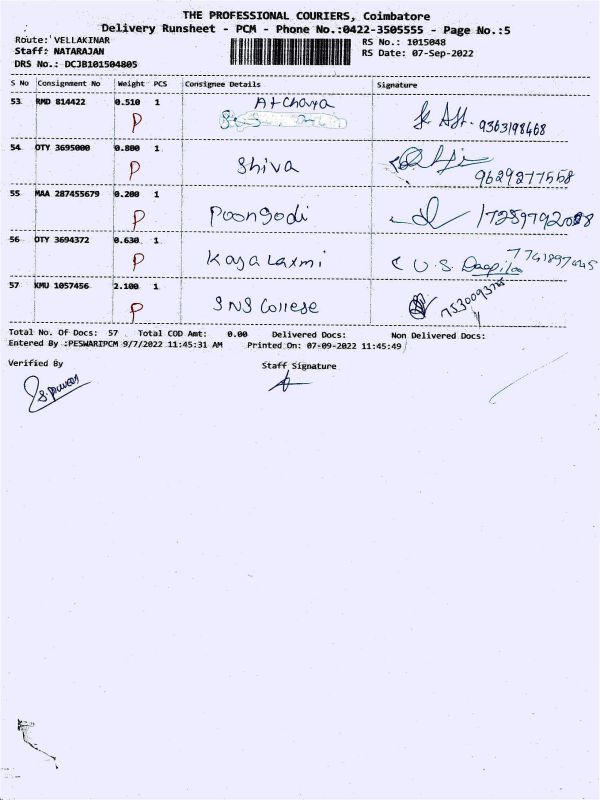 THE PROFESSIONAL COURIERS, Coimbatore
Delivery Runsheet - PCM - Phone No.:0422-3505555 - Page No.:5
Route: VELLAKINAR
RS No.: 1015048
Staff: NATARAJAN
RS Date: 07-Sep-2022
DRS No.: DCJB101504805
S No Consignment No Weight PCS Consignee Details Signature
53 RMD 814422 0.510 1 Atchaya 9363198468
P
54 OTY 3695000 0.800 1
P Shiva 9629277558
55 MAA 287455679 0.200 1
P Poongodi
56 OTY 3694372 0.630 1
P Kajalaxmi U.S.
57 KMU 1057456 2.100 1
P SNS College
Total No. Of Docs: 57 Total COD Amt: 0.00 Delivered Docs: Non Delivered Docs:
Entered By :PESWARIPCM 9/7/2022 11:45:31 AM Printed On: 07-09-2022 11:45:49
Verified By Staff Signature